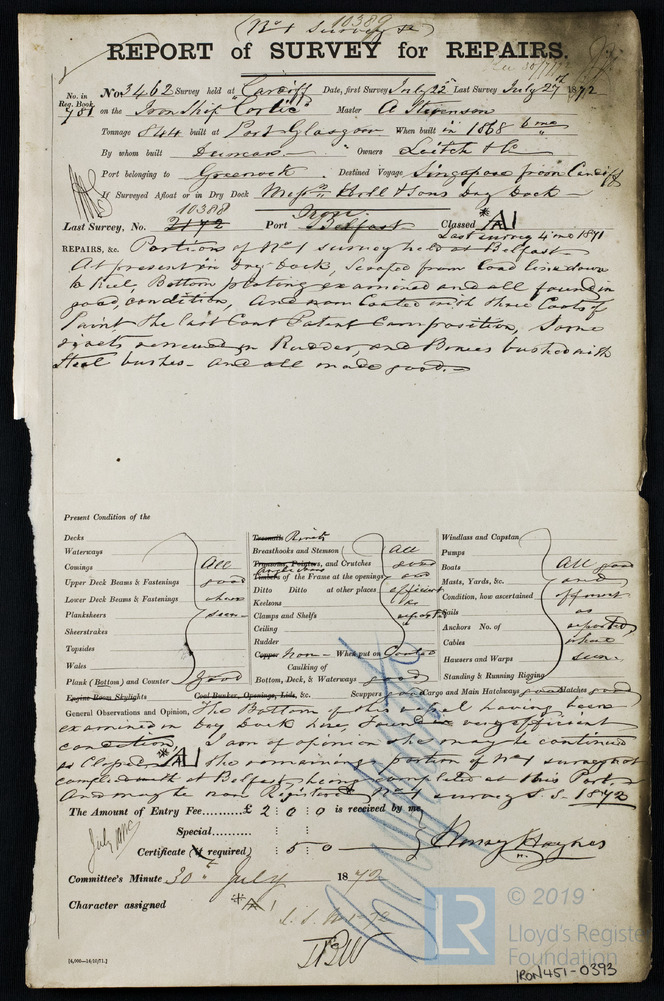 (No 1 Survey
10389
REPORT of SURVEY for REPAIRS.
No. in Reg. Book 781
No 3462 Survey held at Cardiff Date, first Survey July 22nd Last Survey July 27th 1872
on the Iron Ship "Cortic" Master A Stevenson
Tonnage 844 built at Port Glasgow When built in 1868 6 mo
By whom built Duncan Owners Leitch & Co
Port belonging to Greenock Destined Voyage Singapore from Cardiff
If Surveyed Afloat or in Dry Dock Messrs Hill & Sons Dry Dock
10388 Iron.
Last Survey, No. 2172 Port Belfast Classed *A1
Last survey 4 mo 1871
REPAIRS, &c. Portions of No 1 survey held at Belfast
At present in Dry Dock, Scraped from load line down
to Keel, Bottom plating examined and all found in
good condition, And now Coated with three Coats of
Paint the last Coat Patent Composition, Some
rivets renewed in Rudder, and Braces bushed with
Steel bushes - and all made good.
Present Condition of the
Decks
Waterways
Comings
Upper Deck Beams & Fastenings
Lower Deck Beams & Fastenings
Planksheers
Sheerstrakes
Topsides
Wales
All good where seen
Plank (Bottom) and Counter Good
Engine Room Skylights
Treenails Rivets
Breasthooks and Stemson
Transoms, Pointers, and Crutches
Timbers of the Frame at the openings
Ditto Ditto at other places
Keelsons
Clamps and Shelfs
Ceiling
Rudder
All good and efficient as reported
Copper None When put on Coated
Caulking of
Bottom, Deck, & Waterways good
Coal Bunker, Openings, Lids, &c. Scuppers good
Windlass and Capstan
Pumps
Boats
Masts, Yards, &c.
Condition, how ascertained
Sails
Anchors No. of
Cables
Hausers and Warps
Standing & Running Rigging
All good and efficient as reported what seen
Cargo and Main Hatchways good Hatches good
General Observations and Opinion, The Bottom of this vessel having been
examined in Dry Dock here, Found in very efficient
condition, I am of opinion she may be continued
as Classed *A1 The remaining portion of No 1 survey not
complied with at Belfast, being completed at this Port
And may be now Registered No 1 survey S.S. 1872
The Amount of Entry Fee.........£ 2 : 0 : 0 is received by me,
Special............ : :
Certificate (if required) : 5 : 0
Henry Haynes
Committee's Minute 30th July 1872
Character assigned *A1
S.S. No 1-72
[4,000—14/10/71.]
LR
© 2019
Lloyd's Register
Foundation
IRON 451-0393